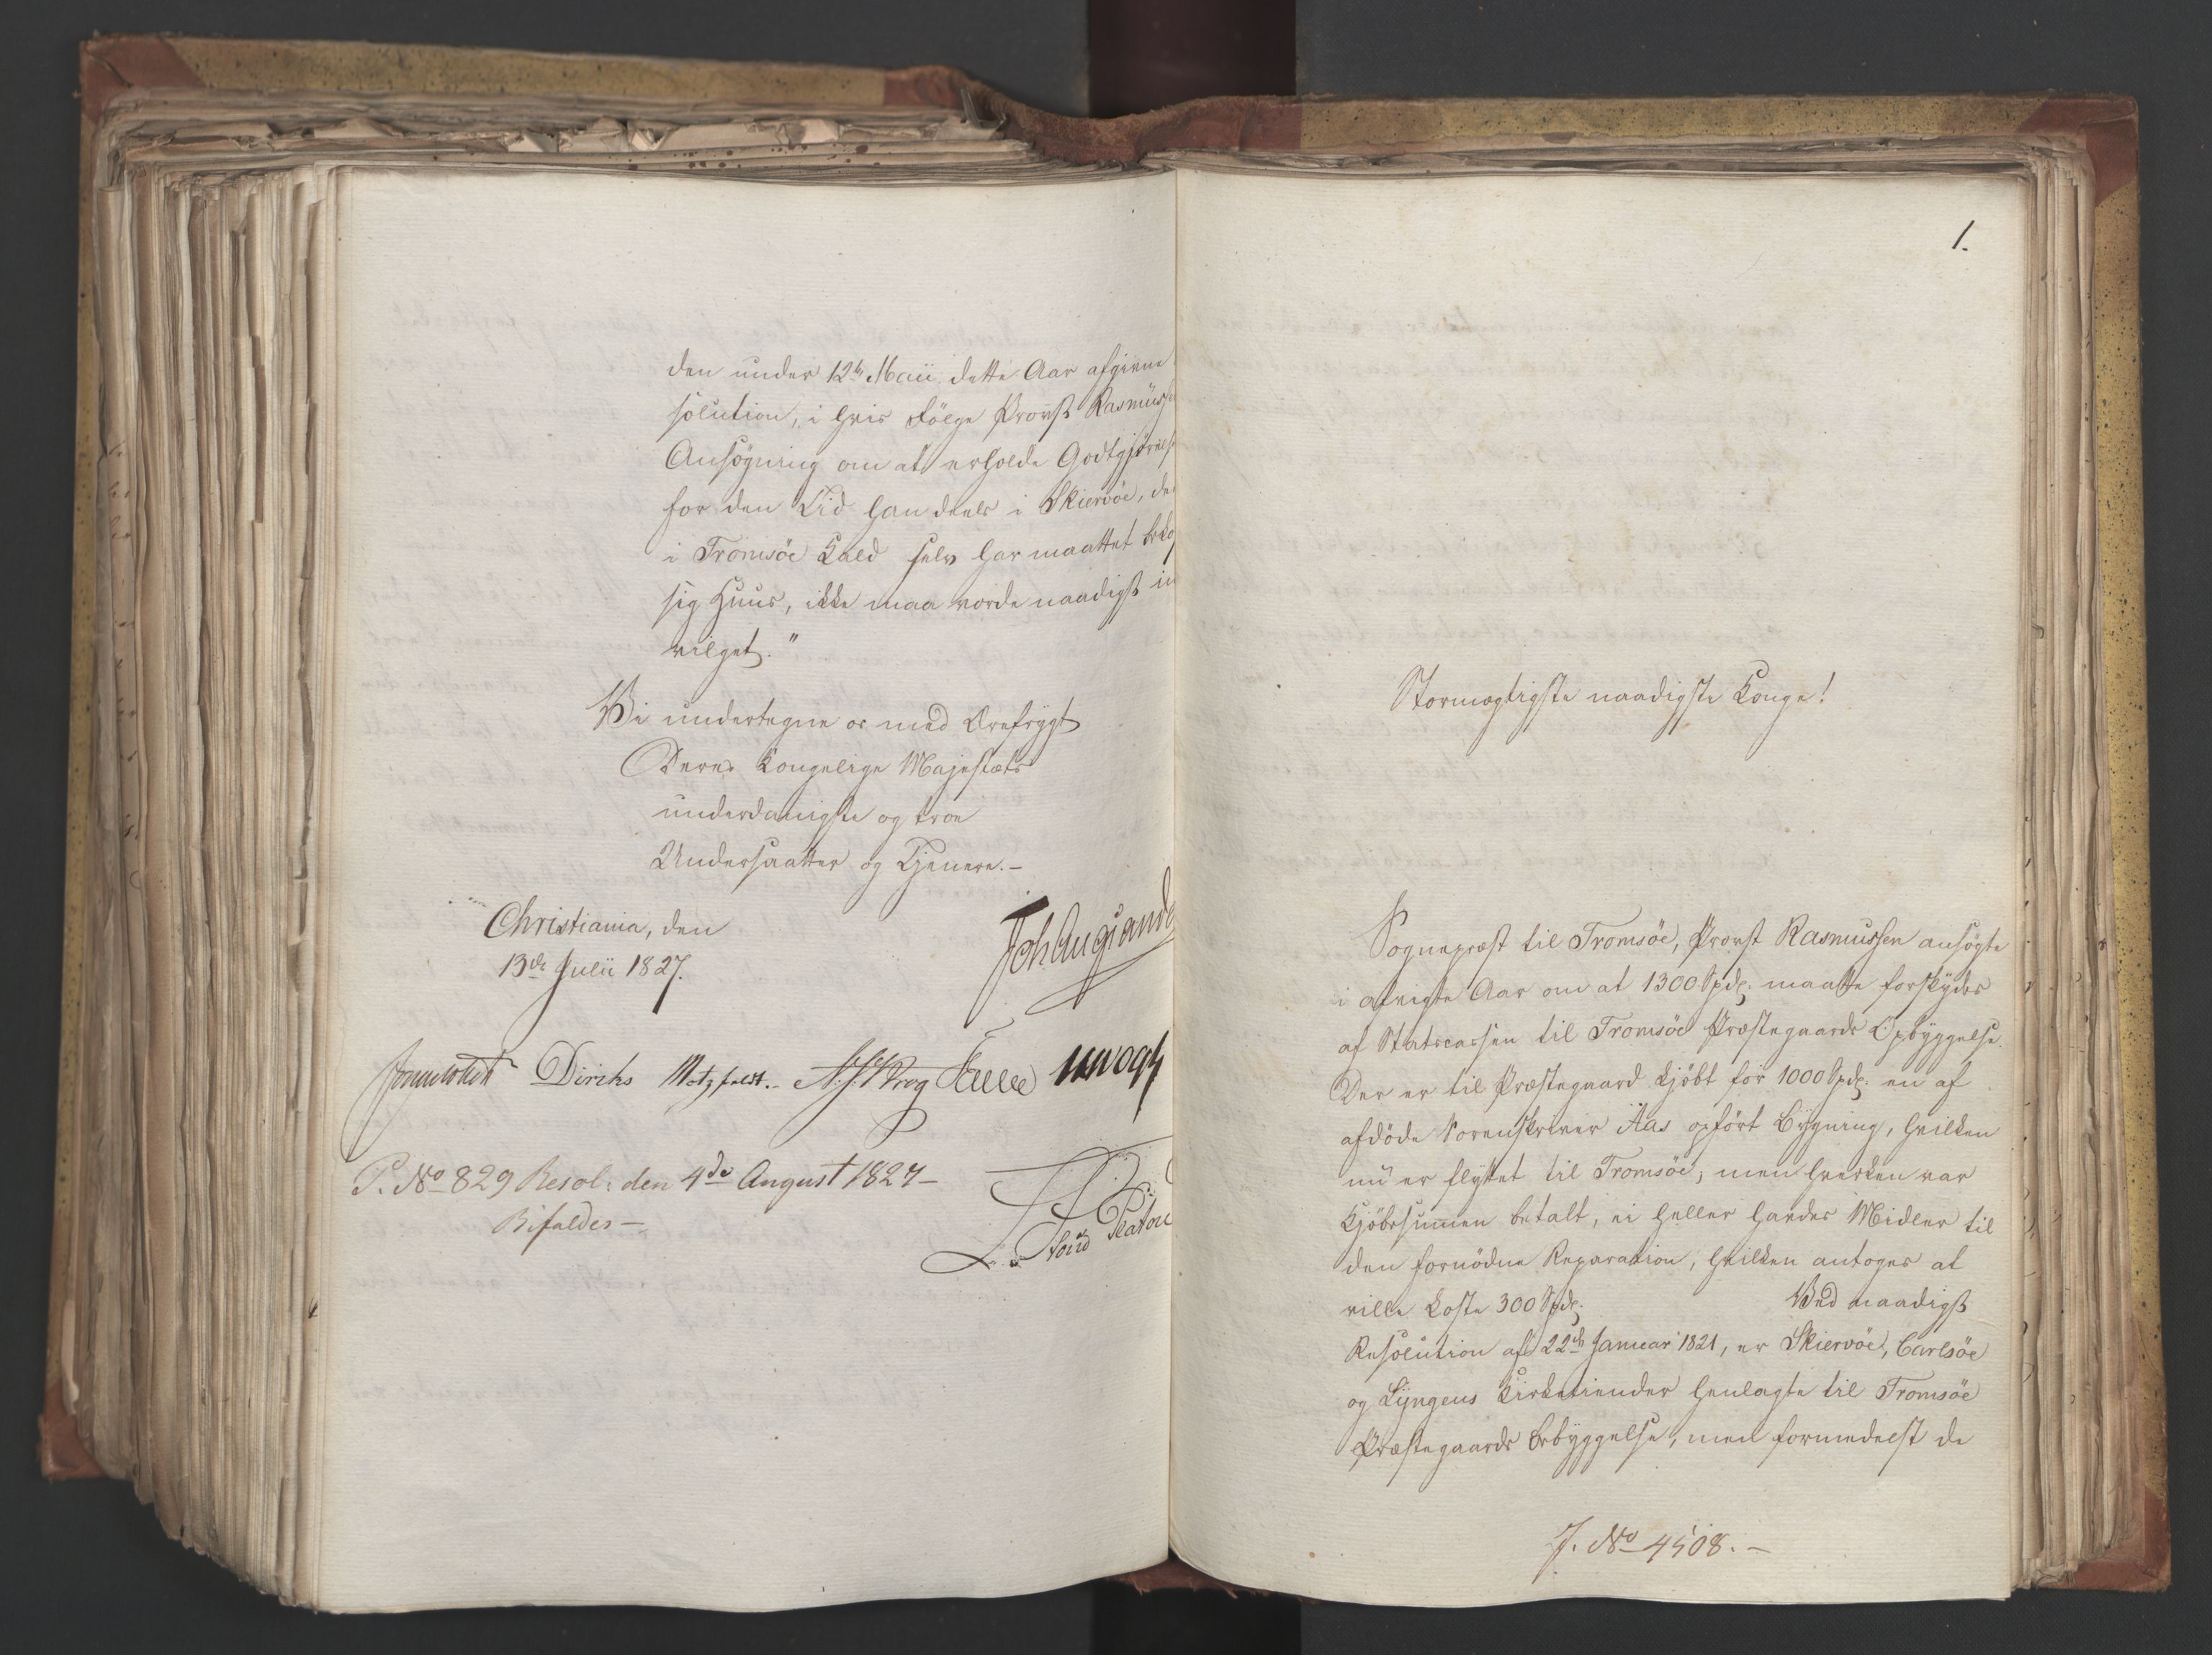 den under 12te Maii dette Aar afgivne
solution, i hvis Følge Provst Rasmusse
Ansøgning om at erholde Godtgjørels
for den Tid han deels i Skiervöe, de
i Tromsöe Kald selv har maattet beko
sig Huus, ikke maa vorde naadigst in
vilget."
Vi undertegne os med Ærefrygt
Deres Kongelige Majestæts
underdanigste og troe
Undersaatter og Tjenere.-
Christiania, den
13de Julii 1827.
Joh Aug Sande
Diriks Motzfeldt.- Krog
P. No 829 Resol: den 4de August 1827-
Bifaldes-
1.
Stormægtigste naadigste Konge!
Sognepræst til Tromsöe, Provst Rasmussen ansøgte
i afvigte Aar om at 1300 Spdr. maatte forskydes
af Statscassen til Tromsöe Præstegaards Opbyggelse.
Der er til Præstegaard kjøbt for 1000 Spdr. en af
afdöde Sorenskriver Aas opført Bygning, hvilken
nu er flyttet til Tromsöe, men hverken var
Kjøbesummen betalt, ei heller havdes Midler til
den fornødne Reparation, hvilken antoges at
ville koste 300 Spdr. Ved naadigst
Resolution af 22de Januar 1821, er Skiervöe, Carlsöe
og Lyngens Kirketiender henlagte til Tromsöe
Præstegaards Bebyggelse, men formedelst de
J. No 4508.-